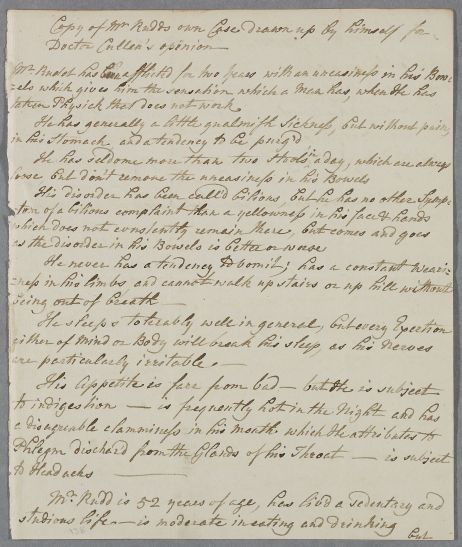 Copy of Mr Rudds own Case drawn up by himself for
Doctor Cullen's opinion
Mr Rudd has been afflicted for two Years with an uneasiness in his Bow=
=els which gives him the sensation which a Man has, when He has
taken Physick that does not work.
He has generally a little qualmish Sickness, but without pain,
in his Stomach, and a tendency to be purg'd
He has seldome more than two Stools a day, which are always
loose but don't remove the uneasiness in his Bowels
His disorder has been call'd bilious, but he has no other Symp=
tom of a bilious complaint than a yellowness in his face & hands
which does not constantly remain there, but comes and goes
as the disorder in his Bowels is better or worse
He never has a tendency to vomit; has a constant weari=
=ness in his limbs, and cannot walk up stairs or up hill without
being out of breath
He sleeps tolerably well in general, but every Exertion
either of Mind or Body will break his sleep, as his Nerves
are particularly irritable. —
His Appetite is farr from bad — but He is subject
to indigestion — is frequently hot in the Night and has
a disagreable clamminess in his mouth which He attributes to
Phlegm dischard from the Glands of his Throat — is subject
to Headachs —
Mr. Rudd is 52 years of age, has liv'd a sedentary and
studious life — is moderate in eating and drinking
but